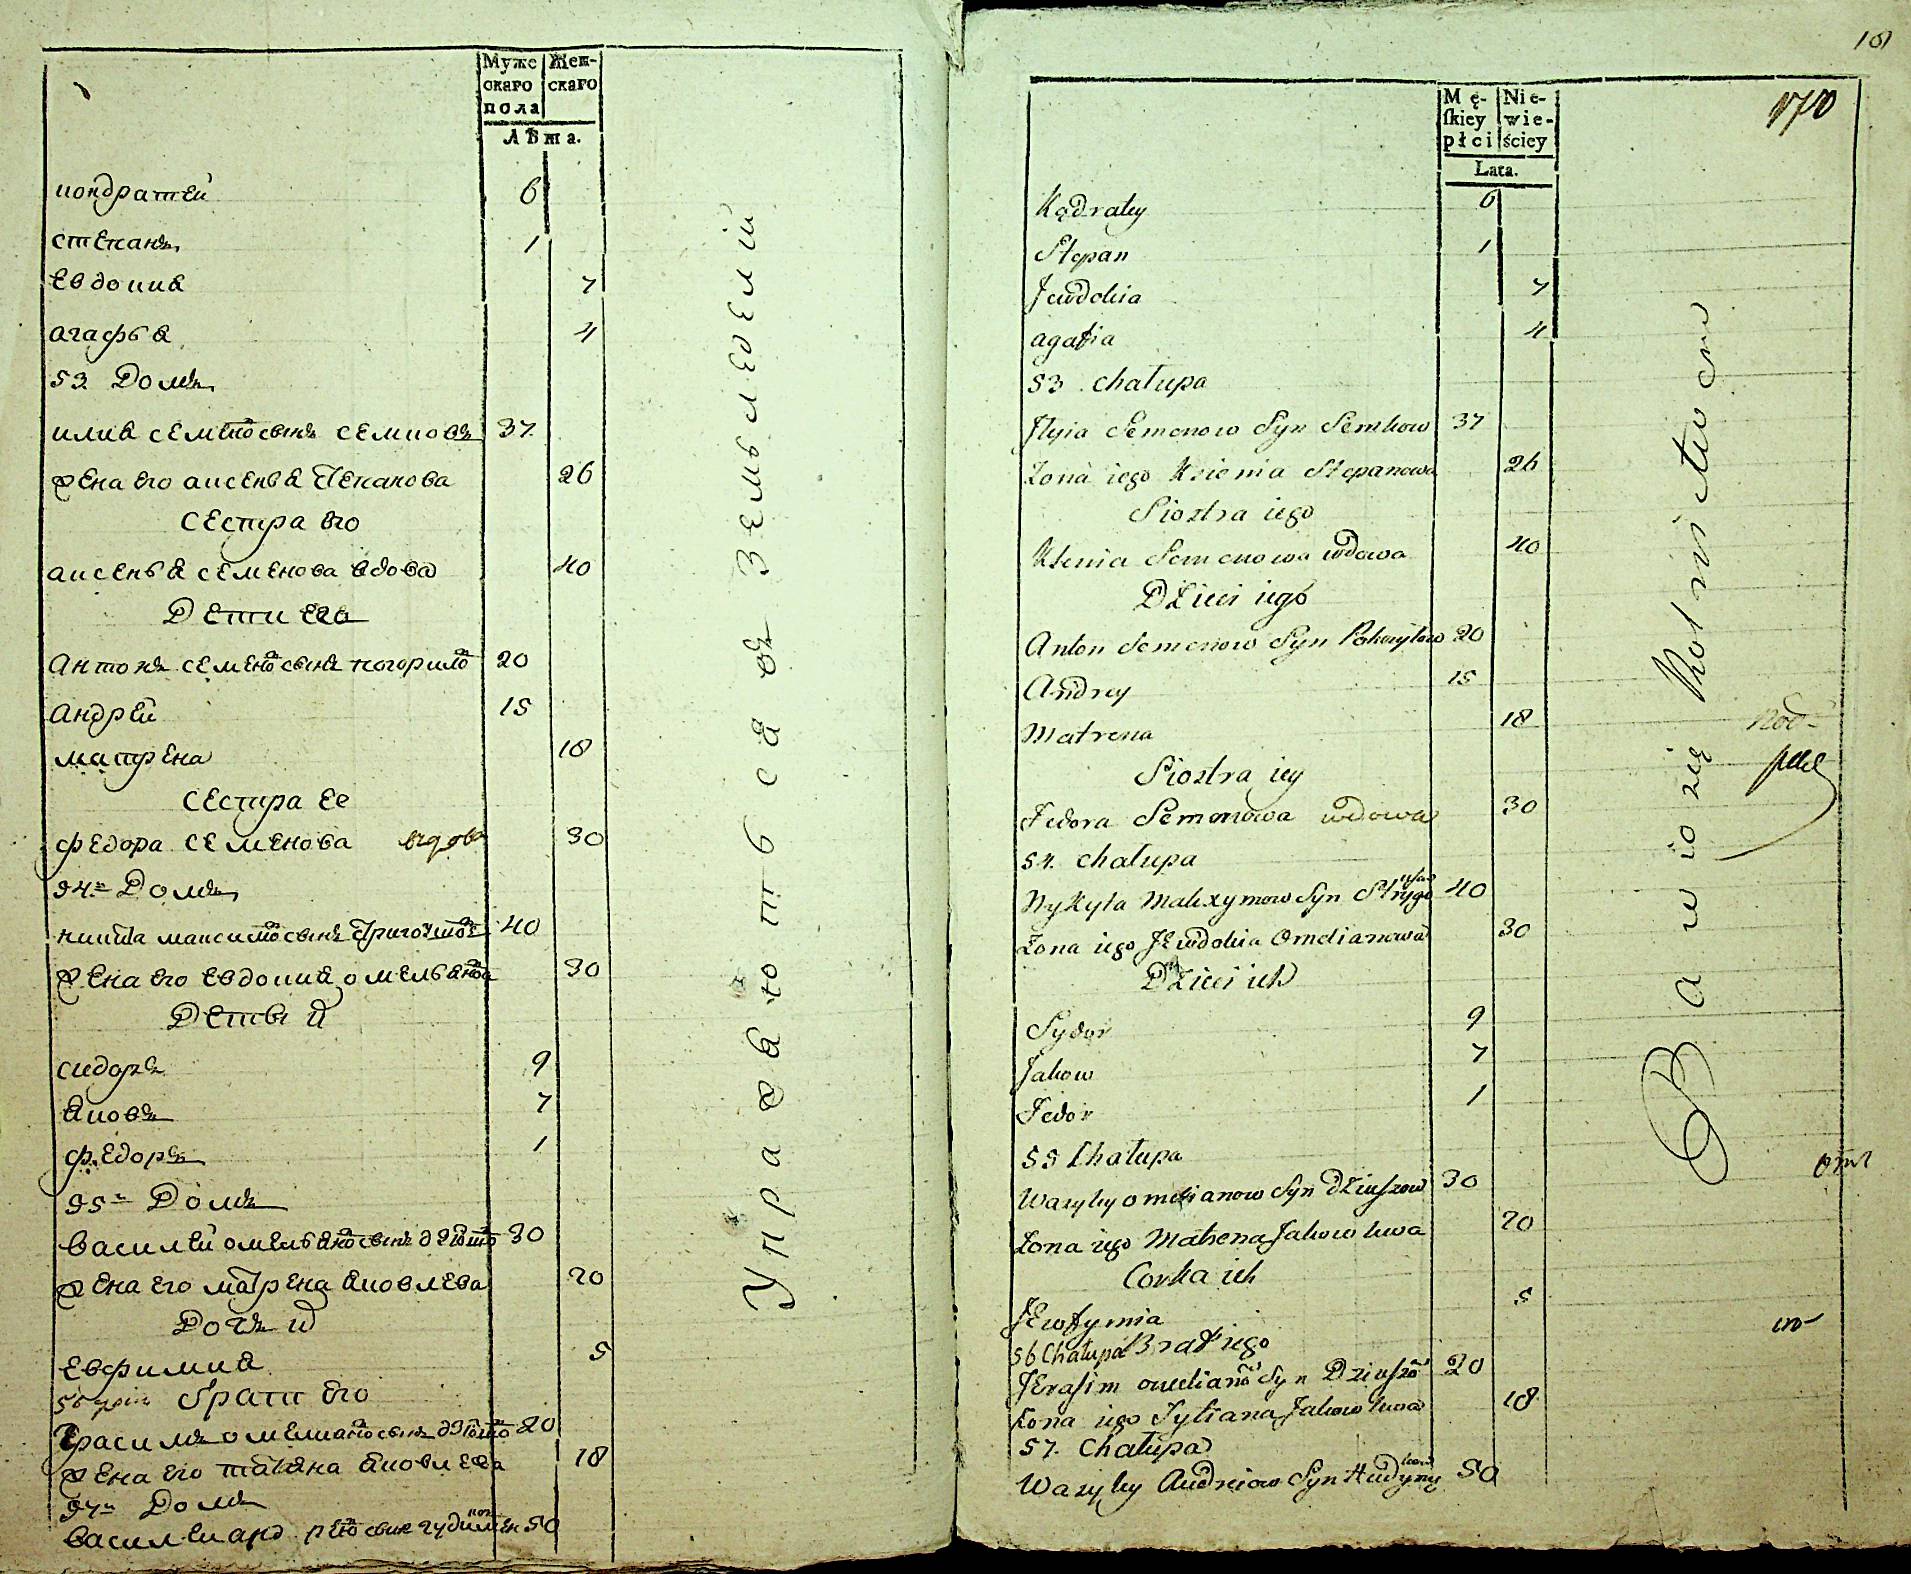 Муже
скаго
пола
Жен-
скаго
Лѣта.
кондратей 6
степанъ 1
евдокия 7
агафья 4
53 Домъ
илия семеновсынъ семковъ 37
жена его аксенья степанова 26
сестра его
аксенья семенова вдова 40
Дети его
антонъ семеновсынъ 20
андрей 15
матрена 18
сестра ее
федора семенова вдова 30
54 Домъ
никита максимовсынъ 40
жена его евдокия омельянова 30
Дети и
сидоръ 9
яковъ 7
федоръ 1
55 Домъ
василей омельяновсынъ 30
жена его матрена яковлева 20
Дочь и
евфимия 5
56 братъ его
герасимъ омелиановсынъ 20
жена его татияна яковлева 18
57 Домъ
василей 50
Упражняются въ земледелии
101
Mę-
ſkiey
płci
Nie-
wie-
ściey
Lata.
170
Kądratey 6
Stepan 1
Jewdokia 7
agafia 4
53 chałupa
Jlyia Semenow Syn Semkow 37
Żona iego Ksienia Stepanowa 26
Siostra iego
Ksenia Semenowa wdowa 40
Dzieci iego
Anton Semenow Syn 20
Andrey 15
Matrena 18
Siostra iey
Fedora Semenowa wdowa 30
54. chałupa
Mykyta Maxymow Syn 40
Żona iego Jewdokia Omelianowa 30
Dzieci ich
Sydor 9
Jakow 7
Fedor 1
55 Chałupa
Wasyley omelianow Syn dziuszow 30
Żona iego Matrena Jakowlewa 20
Corka ich
Jewfymia 5
56 Chałupa Brat iego
Jerasim Syn 20
Żona iego Tytiana Jakowlewa 18
57. Chałupa
Wasyley Andreiow Syn 50
Bawią się Rolnictwem